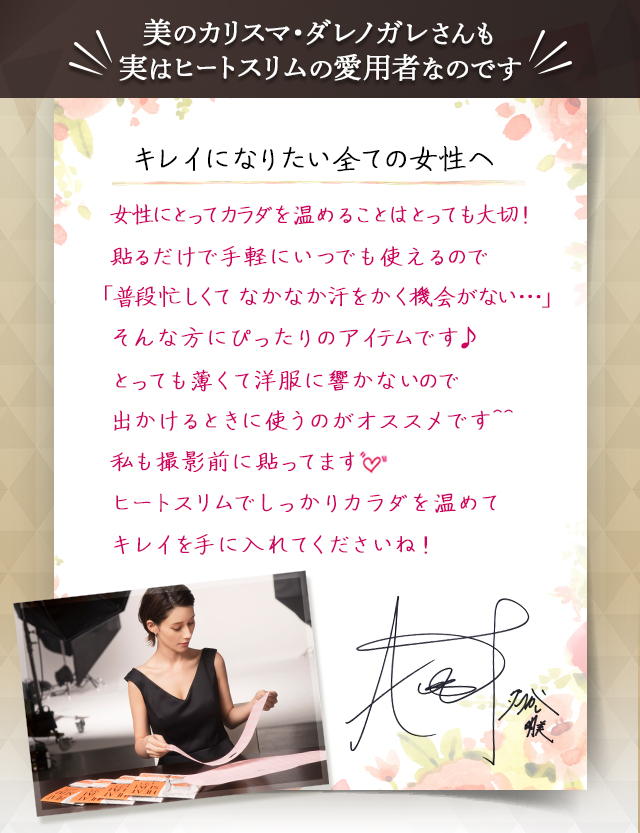 美のカリスマ・ダレノガレさんも
実はヒートスリムの愛用者なのです
キレイになりたい全ての女性へ
女性にとってカラダを温めることはとっても大切！
貼るだけで手軽にいつでも使えるので
「普段忙しくて なかなか汗をかく機会がない・・・」
そんな方にぴったりのアイテムです♪
とっても薄くて洋服に響かないので
出かけるときに使うのがオススメです^^
私も撮影前に貼ってます
ヒートスリムでしっかりカラダを温めて
キレイを手に入れてくださいね！